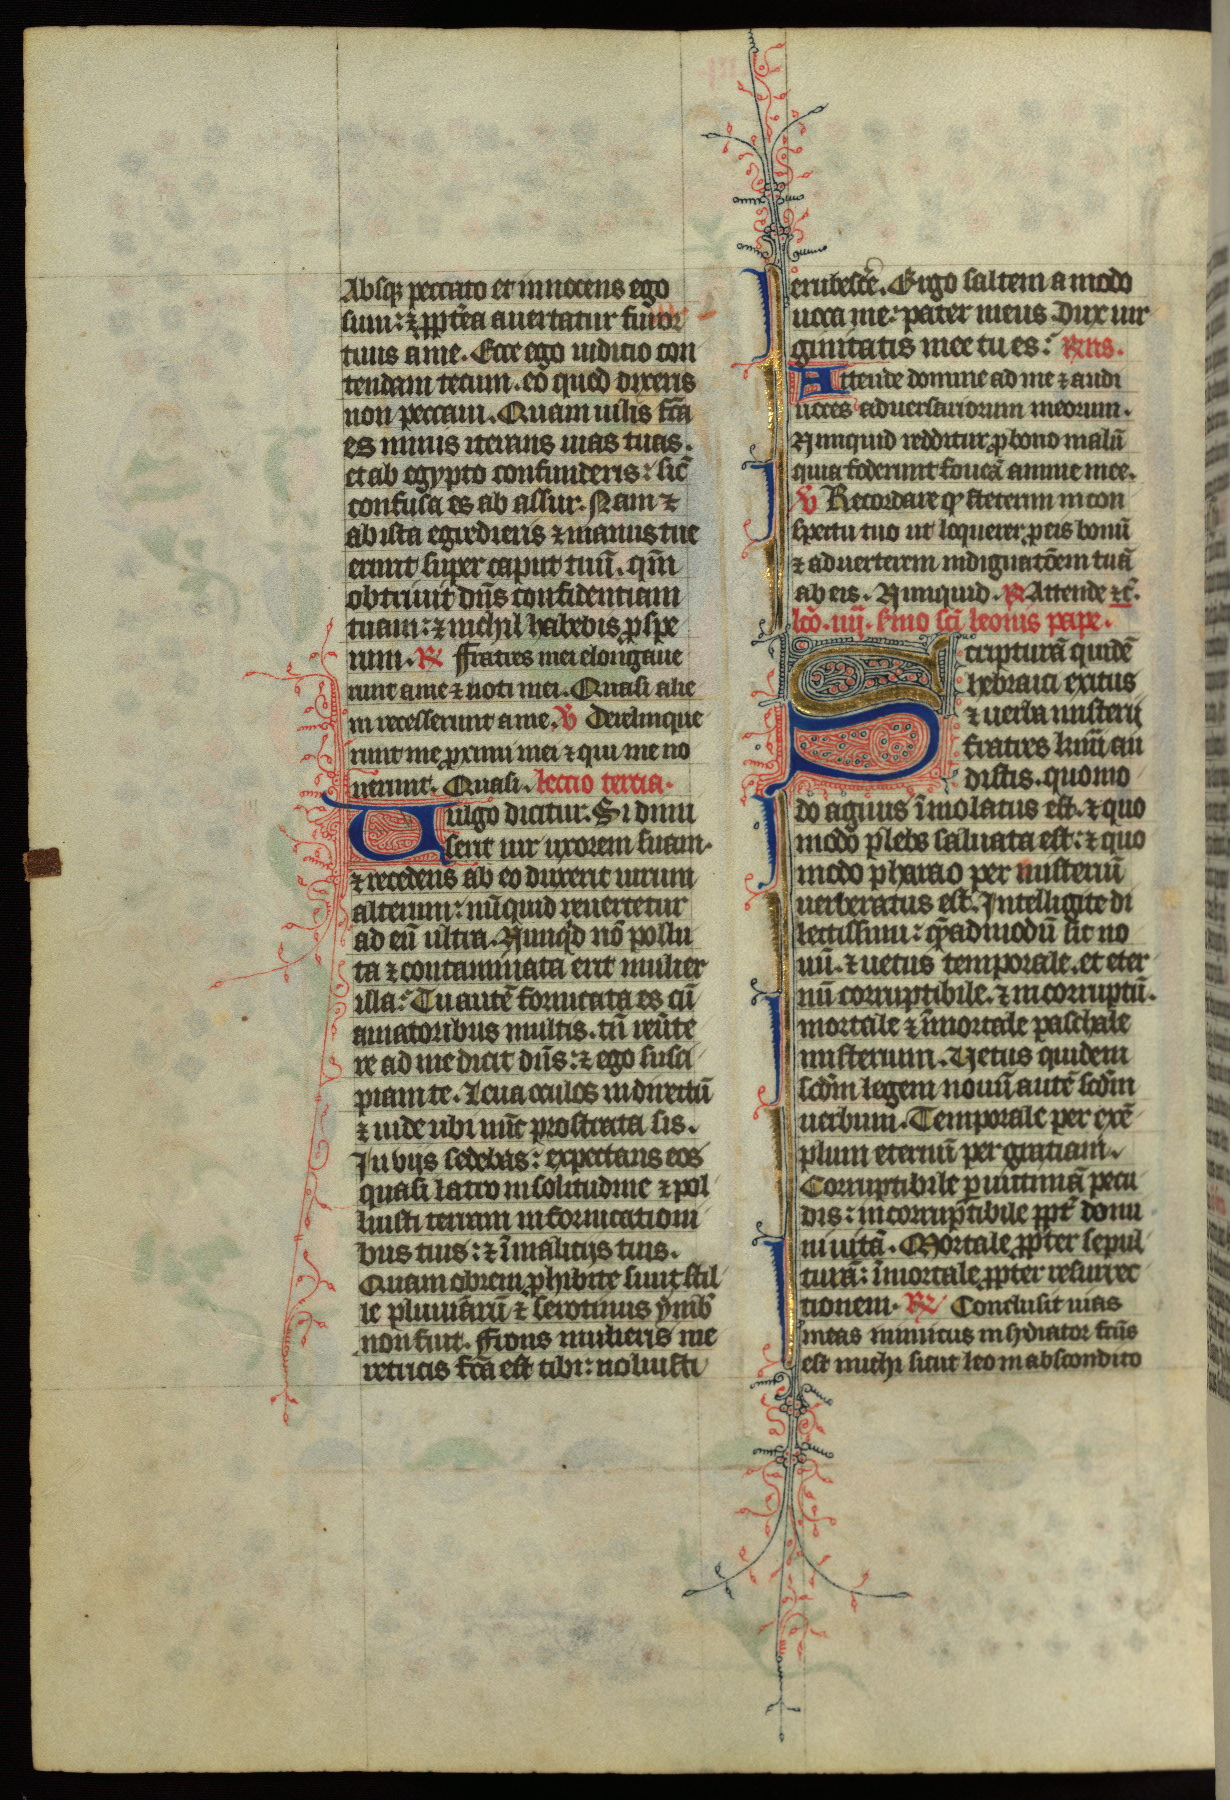 Absq; peccato et innocens ego
sum: ⁊ ꝓpt̄ea auertatur furor
tuus a me. Ecce ego iudicio con
tendam tecum. eo quod dixeris
non peccaui. Quam uilis fc̄a
es nimis iterans uias tuas.
et ab egypto confunderis: sic̄
confusa es ab assur. Nam ⁊
ab ista egredieris ⁊ manus tue
erunt super caput tuū. qm̄
obtriuit dn̄s confidentiam
tuam: ⁊ nichil habebis ꝓspe
rum. ℟ Fratres mei elongaue
runt a me ⁊ noti mei. Quasi alie
ni recesserunt a me. ℣ Derelinque
runt me ꝓximi mei ⁊ qui me no
uerunt. Quasi. lectio tertia.
Uulgo dicitur. Si dimi
serit uir uxorem suam.
⁊ recedens ab eo duxerit uirum
alterum: nūquid reuertetur
ad eū ultra. Nunqͥd nō pollu
ta ⁊ contaminata erit mulier
illa: Tu autē fornicata es cū
amatoribus multis. tū reu̾te
re ad me dicit dn̄s: ⁊ ego susci
piam te. Leua oculos in directū
⁊ uide ubi nūc prostrata sis.
In vijs sedebas: expectans eos
quasi latro in solitudine ⁊ pol
luisti terram in fornicationi
bus tuis: ⁊ ī malicijs tuis.
Quam obrem ꝓhibite sunt stil
le pluuiarū ⁊ serotinus ymb̾
non fuit. Frons mulieris me
retricis fc̄a est tibi: noluisti
erubesc̄e. Ergo saltem a modo
uoca me: pater meus. Dux uir
ginitatis mee tu es: ℟ns.
Attende domine ad me ⁊ audi
uoces aduersariorum meorum.
Nunquid redditur ꝓ bono malū
quia foderunt foueā anime mee.
℣ Recordare qͥ steterim in con
spectu tuo ut loquerer ꝓ eis bonū
⁊ aduerterem indignatōem tuā
ab eis. Nunquid. ℟ Attende ⁊c̄.
lcō. iiij. s̾mo sc̄i leonis pape.
Scripturā quidē
hebraici exitus
⁊ uerba misterij
fratres km̄i au
distis. quomo
do agnus īmolatus est. ⁊ quo
modo plebs saluata est: ⁊ quo
modo pharao per misteriū
uerberatus est. Intelligite di
lectissimi: qͣadmodū sit no
uū. ⁊ uetus temporale. et eter
nū corruptibile. ⁊ incorruptū.
mortale ⁊ īmortale paschale
misterium. Uetus quidem
scd̄m legem nouū autē scd̄m
uerbum. Temporale per exē
plum eternū per gratiam.
Corruptibile ꝑ uictimā pecu
dis: incorruptibile ꝓpt̾ domi
ni uitā. Mortale ꝓpter sepul
turā: īmortale ꝓpter resurrec
tionem. ℟ Conclusit uias
meas inimicus insidiator fc̄us
est michi sicut leo in abscondito